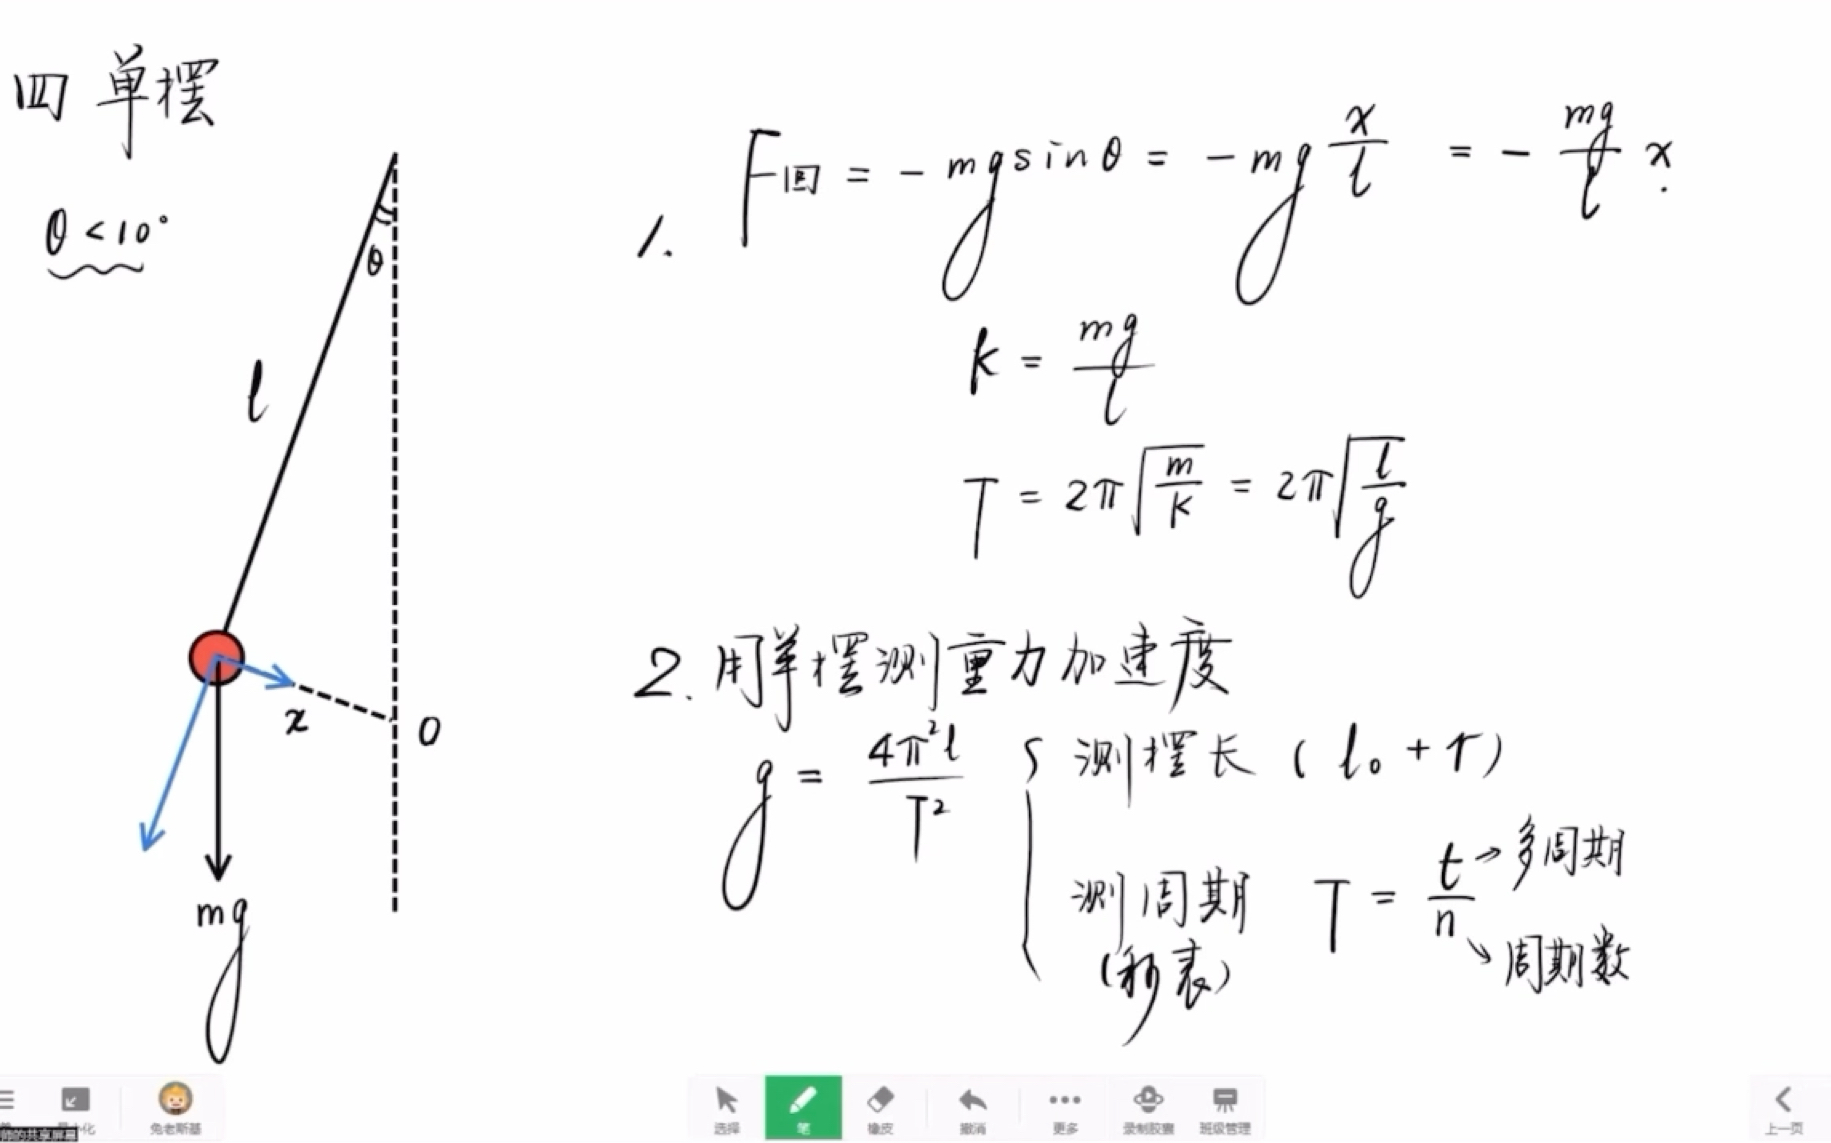 四 单摆
θ < 10°
θ
l
x
O
mg
1. F回 = - mg sinθ = - mg x/l = - mg/l x
k = mg/l
T = 2π√(m/k) = 2π√(l/g)
2. 用单摆测重力加速度
g = 4π²l/T²
测摆长 (l₀ + r)
测周期 T = t/n
t → 多周期
n → 周期数
(秒表)
兔老斯基
选择
笔
橡皮
撤消
更多
录制胶囊
班级管理
上一页